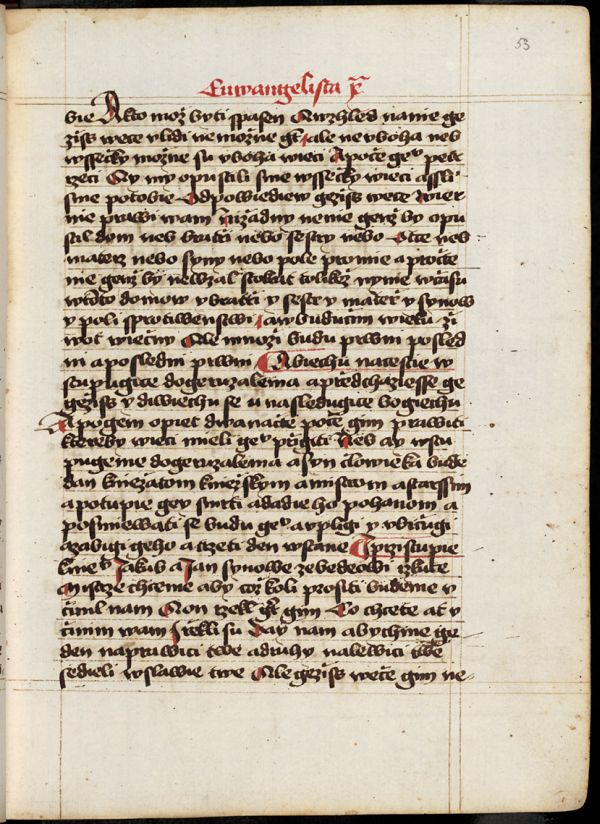 53
Euwangelista x
bie A kto moz byti spasen A wzhled nanie ge
ziss wece v lidi nemozne gt ale ne v boha neb
wssecky mozne su v boha wieci A poče geº petr
rzeci Ay my opustili sme wssecky wieci a ssli
sme po tobie Odpowiediew geziss wece wier
nie prawi wam nizadny nenie genz by opu
stil dom neb bratri nebo sestry nebo Otce neb
materz nebo syny nebo pole pro mie a pro čte
nie genz by newzal stokrat tolikez nynie w času
w tomto domow y bratri y sestr y mater y synow
y poli s protiwenstwi a w buducim wieku zi
wot wiečny Ale mnozi budu prwni posled
ni a posledni prwni A biechu na cestie w
stupugice do geruzalema a predchaziesse ge
geziss y diwiechu se a nasledugice bogiechu
A pogem opiet dwanacte poče gim prawiti
ktereby wieci mieli geº prigiti Neb ay wstu
pugeme do geruzalema a syn človieka bude
dan kniezatom knezskym a mistrom a starssim
a potupie gey smrti a dadie ho pohanom a
posmiewati se budu geº a upligi y vbičugi
a zabigi geho a trzeti den wstane A pristupie
k nieº Jakub a Jan synowe zebedeowi rzkuce
Mistrze chceme aby coz koli prositi budeme v
činil nam A on rzekl gt gim Co chcete at v
činim wam J rekli su Day nam abychme ge
den na prawici twe a druhy na lewici twe
sedieli w slawie twe Ale geziss wece gim ne